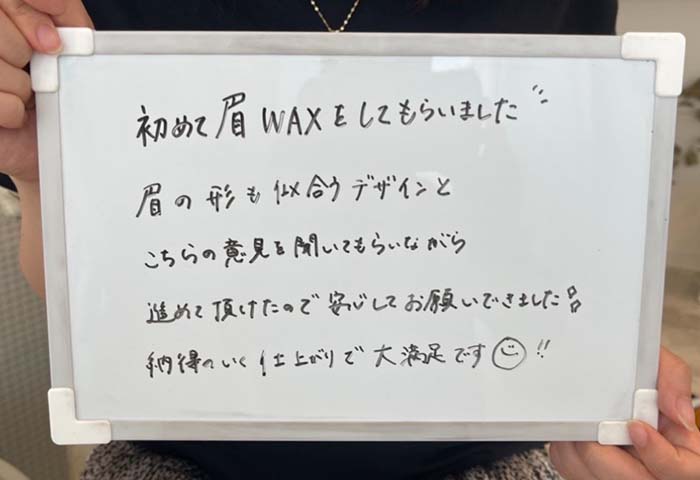 初めて眉WAXをしてもらいました
眉の形も似合うデザインと
こちらの意見を聞いてもらいながら
進めて頂けたので安心してお願いできました
納得のいく仕上がりで大満足です!!